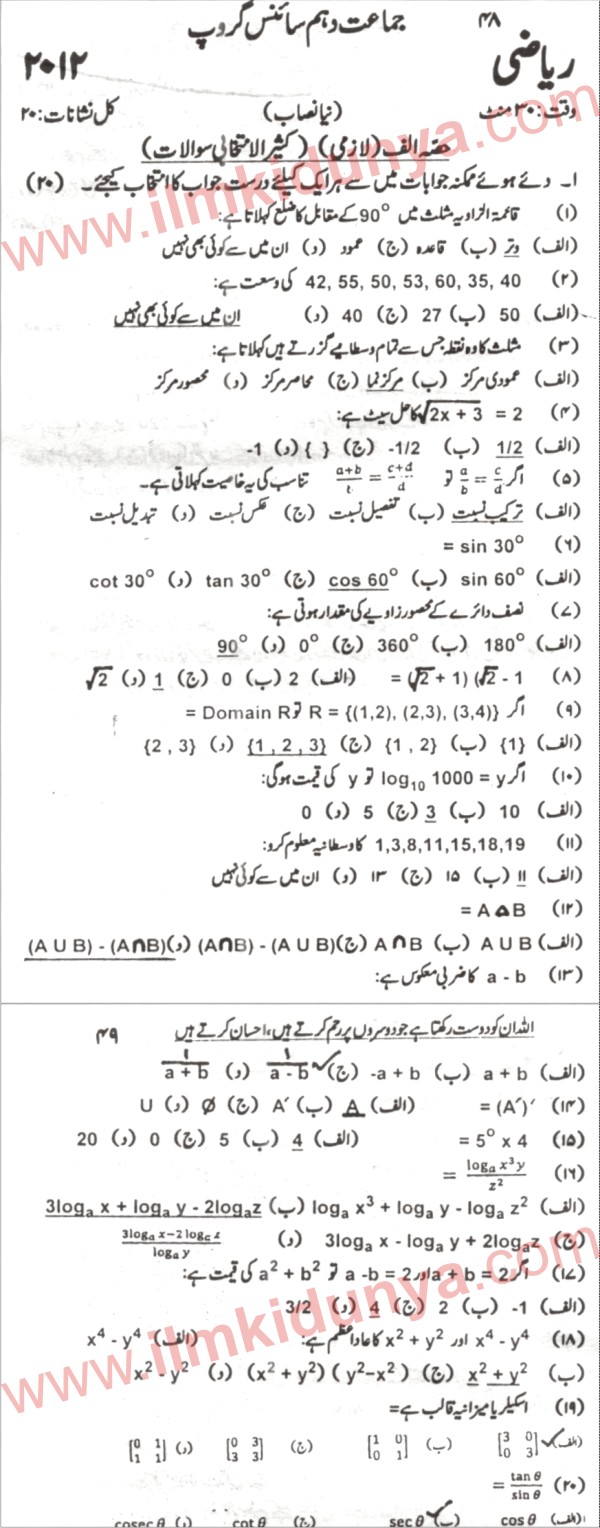 ۴۸ جماعت دہم سائنس گروپ
ریاضی ۲۰۱۲
وقت: ۳۰ منٹ (نیا نصاب) کل نشانات: ۲۰
حصہ الف (لازمی) (کثیر الانتخابی سوالات)
۱۔ دئے ہوئے ممکنہ جوابات میں سے ہر ایک کیلئے درست جواب کا انتخاب کیجئے۔ (۲۰)
(۱) قائمۃ الزاویہ مثلث میں 90° کے مقابل کا ضلع کہلاتا ہے:
(الف) وتر (ب) قاعدہ (ج) عمود (د) ان میں سے کوئی بھی نہیں
(۲) 42, 55, 50, 53, 60, 35, 40 کی وسعت ہے:
(الف) 50 (ب) 27 (ج) 40 (د) ان میں سے کوئی بھی نہیں
(۳) مثلث کا وہ نقطہ جس سے تمام وسطانیے گزرتے ہیں کہلاتا ہے:
(الف) عمودی مرکز (ب) مرکز نما (ج) محاصر مرکز (د) محصور مرکز
(۴) √2x + 3 = 2 کا حل سیٹ ہے:
(الف) 1/2 (ب) -1/2 (ج) { } (د) -1
(۵) اگر a/b = c/d تو a+b/t = c+d/d تناسب کی یہ خاصیت کہلاتی ہے۔
(الف) ترکیب نسبت (ب) تفصیل نسبت (ج) عکس نسبت (د) تبدیل نسبت
(۶) sin 30° =
(الف) sin 60° (ب) cos 60° (ج) tan 30° (د) cot 30°
(۷) نصف دائرے کے محصور زاویے کی مقدار ہوتی ہے:
(الف) 180° (ب) 360° (ج) 0° (د) 90°
(۸) (√2 + 1) (√2 - 1 = (الف) 2 (ب) 0 (ج) 1 (د) √2
(۹) اگر R = {(1,2), (2,3), (3,4)} تو Domain R =
(الف) {1} (ب) {1 , 2} (ج) {1 , 2 , 3} (د) {2 , 3}
(۱۰) اگر log10 1000 = y تو y کی قیمت ہوگی:
(الف) 10 (ب) 3 (ج) 5 (د) 0
(۱۱) 1,3,8,11,15,18,19 کا وسطانیہ معلوم کرو:
(الف) ۱۱ (ب) ۱۵ (ج) ۱۳ (د) ان میں سے کوئی نہیں
(۱۲) A △ B =
(الف) A U B (ب) A ∩ B (ج) (A∩B) - (A U B) (د) (A U B) - (A∩B)
(۱۳) a - b کا ضربی معکوس ہے:
۴۹ اللہ ان کو دوست رکھتا ہے جو دوسروں پر رحم کرتے ہیں، احسان کرتے ہیں
(الف) a + b (ب) -a + b (ج) 1/a - b (د) 1/a + b
(۱۴) (A′)′ = (الف) A (ب) A′ (ج) Ø (د) U
(۱۵) 5° x 4 = (الف) 4 (ب) 5 (ج) 0 (د) 20
(۱۶) loga x³y/z² =
(الف) loga x³ + loga y - loga z² (ب) 3loga x + loga y - 2logaz
(ج) 3loga x - loga y + 2logaz (د) 3loga x-2logc z/loga y
(۱۷) اگر a + b = 2 اور a -b = 2 تو a² + b² کی قیمت ہے:
(الف) -1 (ب) 2 (ج) 4 (د) 3/2
(۱۸) x⁴ - y⁴ اور x² + y² کا عاد اعظم ہے: (الف) x⁴ - y⁴
(ب) x² + y² (ج) (x² + y²) ( y²-x² ) (د) x² - y²
(۱۹) اسکیلر یا میزانیہ قالب ہے=
(الف) [3 0 0 3] (ب) [1 0 0 1] (ج) [0 3 3 3] (د) [0 1 1 1]
(۲۰) tan θ/sin θ =
(الف) cos θ (ب) sec θ (ج) cot θ (د) cosec θ
www.ilmkidunya.com
www.ilmkidunya.com